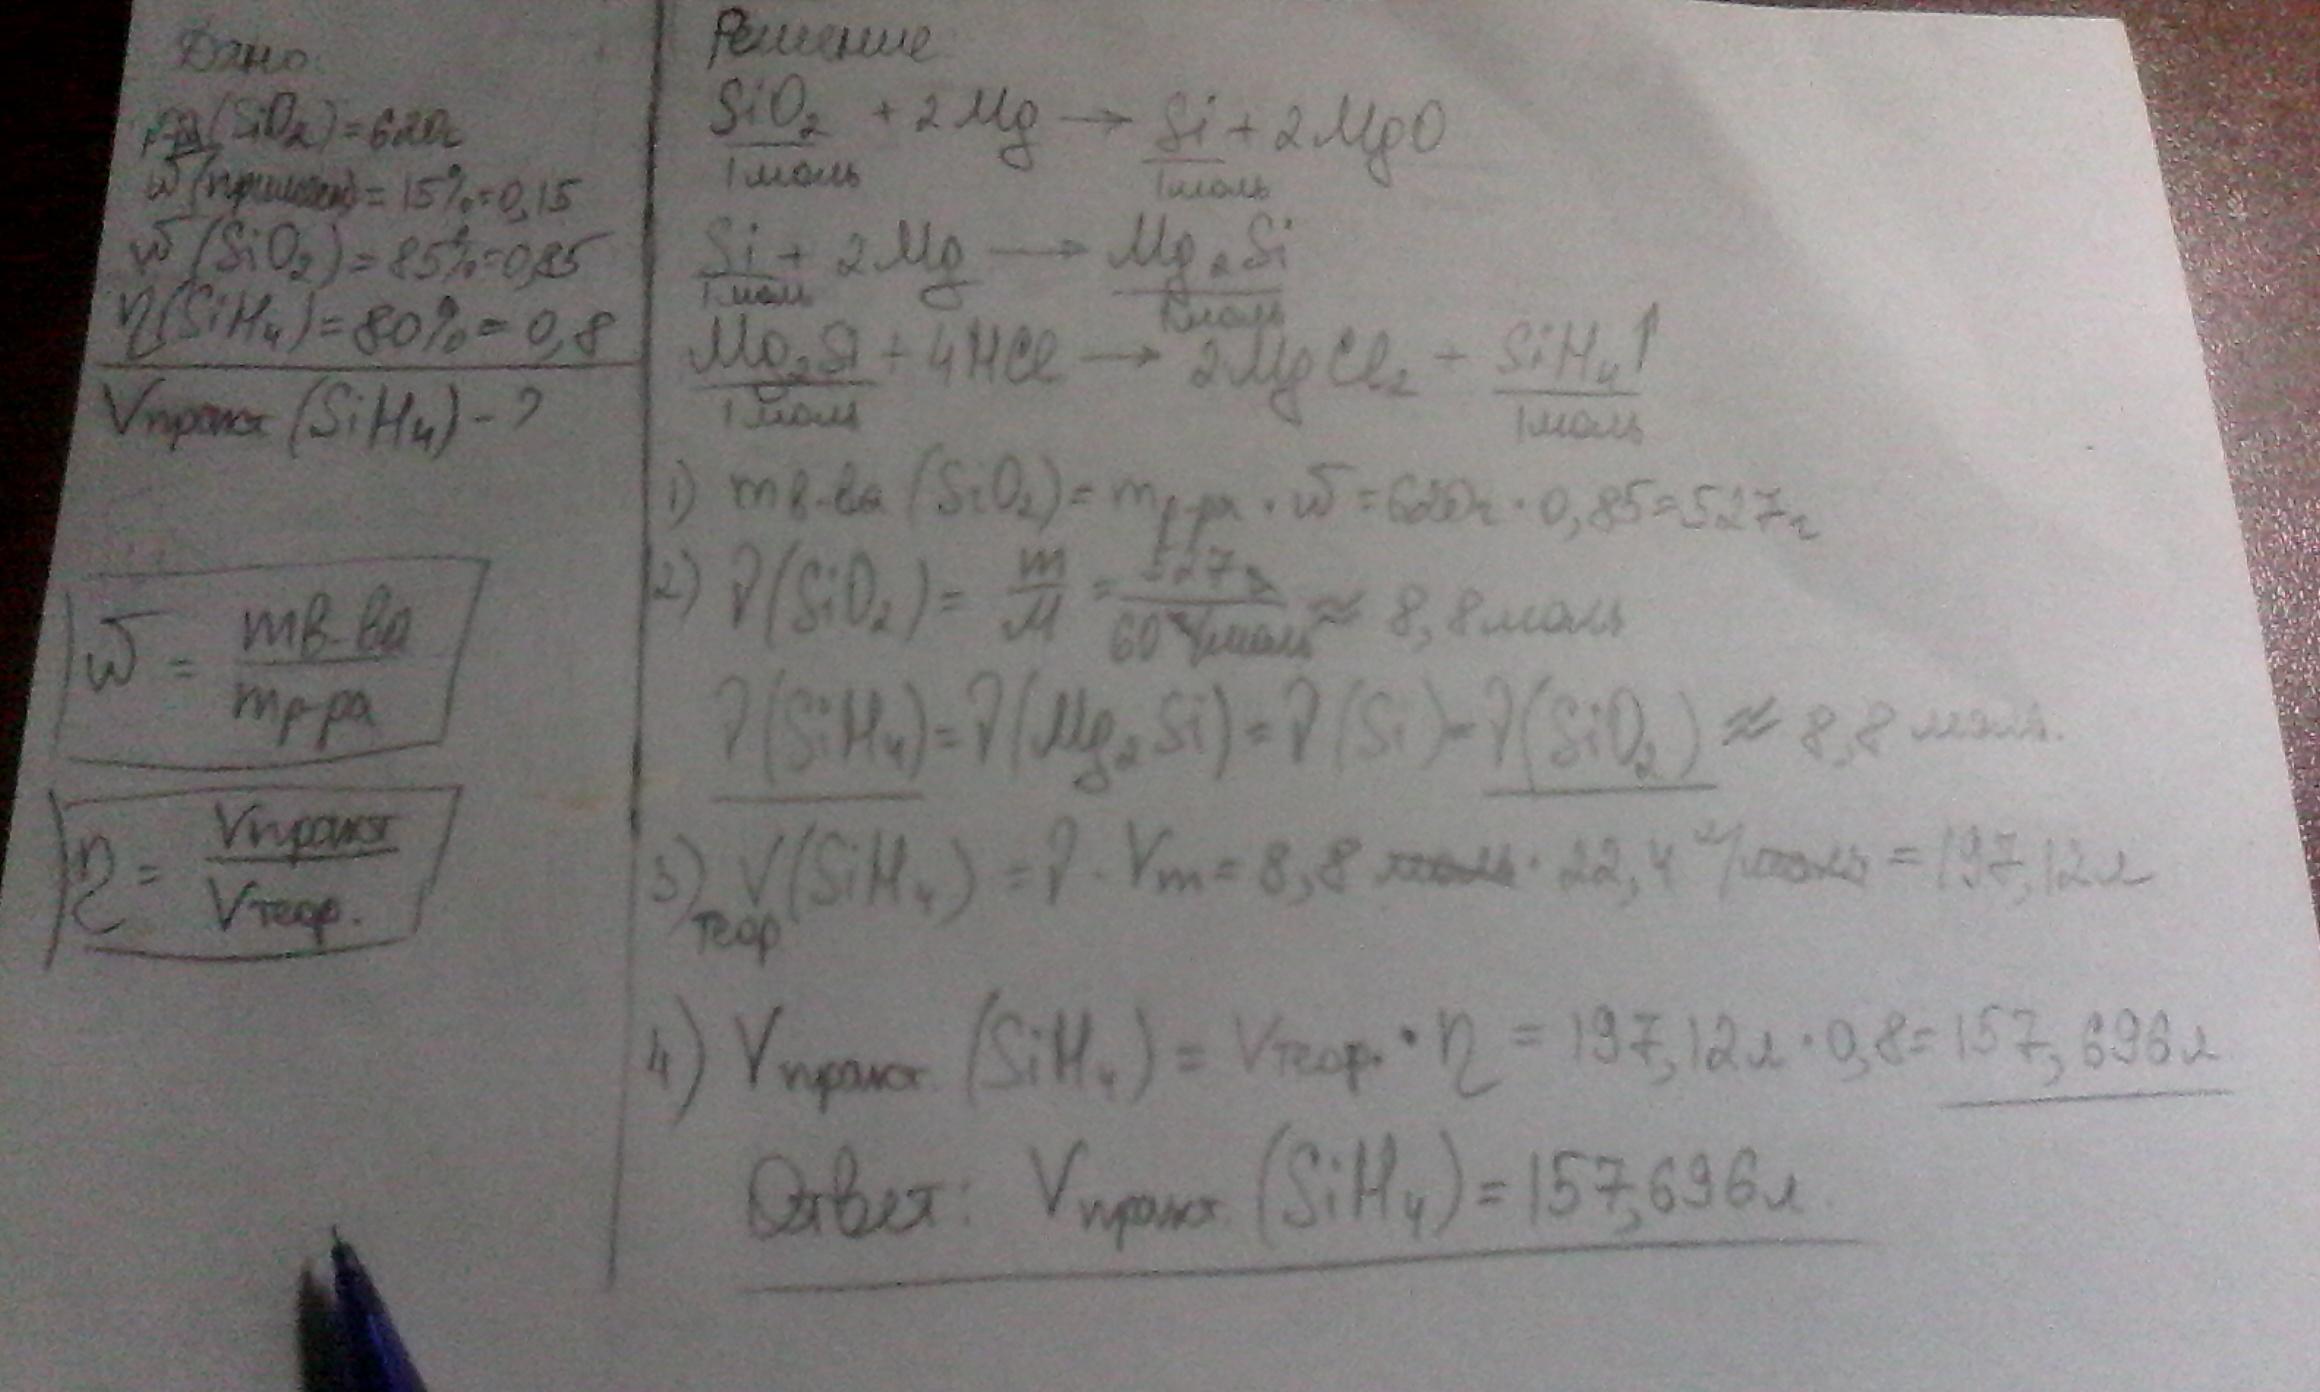 Дано
m(SiO₂)=620г
ω(примеси)=15%=0,15
ω(SiO₂)=85%=0,85
η(SiH₄)=80%=0,8
Vпракт(SiH₄)-?
ω = mв-ва / mр-ра
η = Vпракт / Vтеор.
Решение
SiO₂ + 2Mg → Si + 2MgO
1моль 1моль
Si + 2Mg → Mg₂Si
1моль 1моль
Mg₂Si + 4HCl → 2MgCl₂ + SiH₄↑
1моль 1моль
1) mв-ва(SiO₂)=mр-ра·ω=620г·0,85=527г
2) ν(SiO₂)= m/M = 527г / 60г/моль ≈ 8,8моль
ν(SiH₄)=ν(Mg₂Si)=ν(Si)=ν(SiO₂)≈8,8 моль.
3) Vтеор(SiH₄)=ν·Vm=8,8 моль·22,4 л/моль=197,12л
4) Vпракт(SiH₄)=Vтеор.·η=197,12л·0,8=157,696л
Ответ: Vпракт(SiH₄)=157,696л.